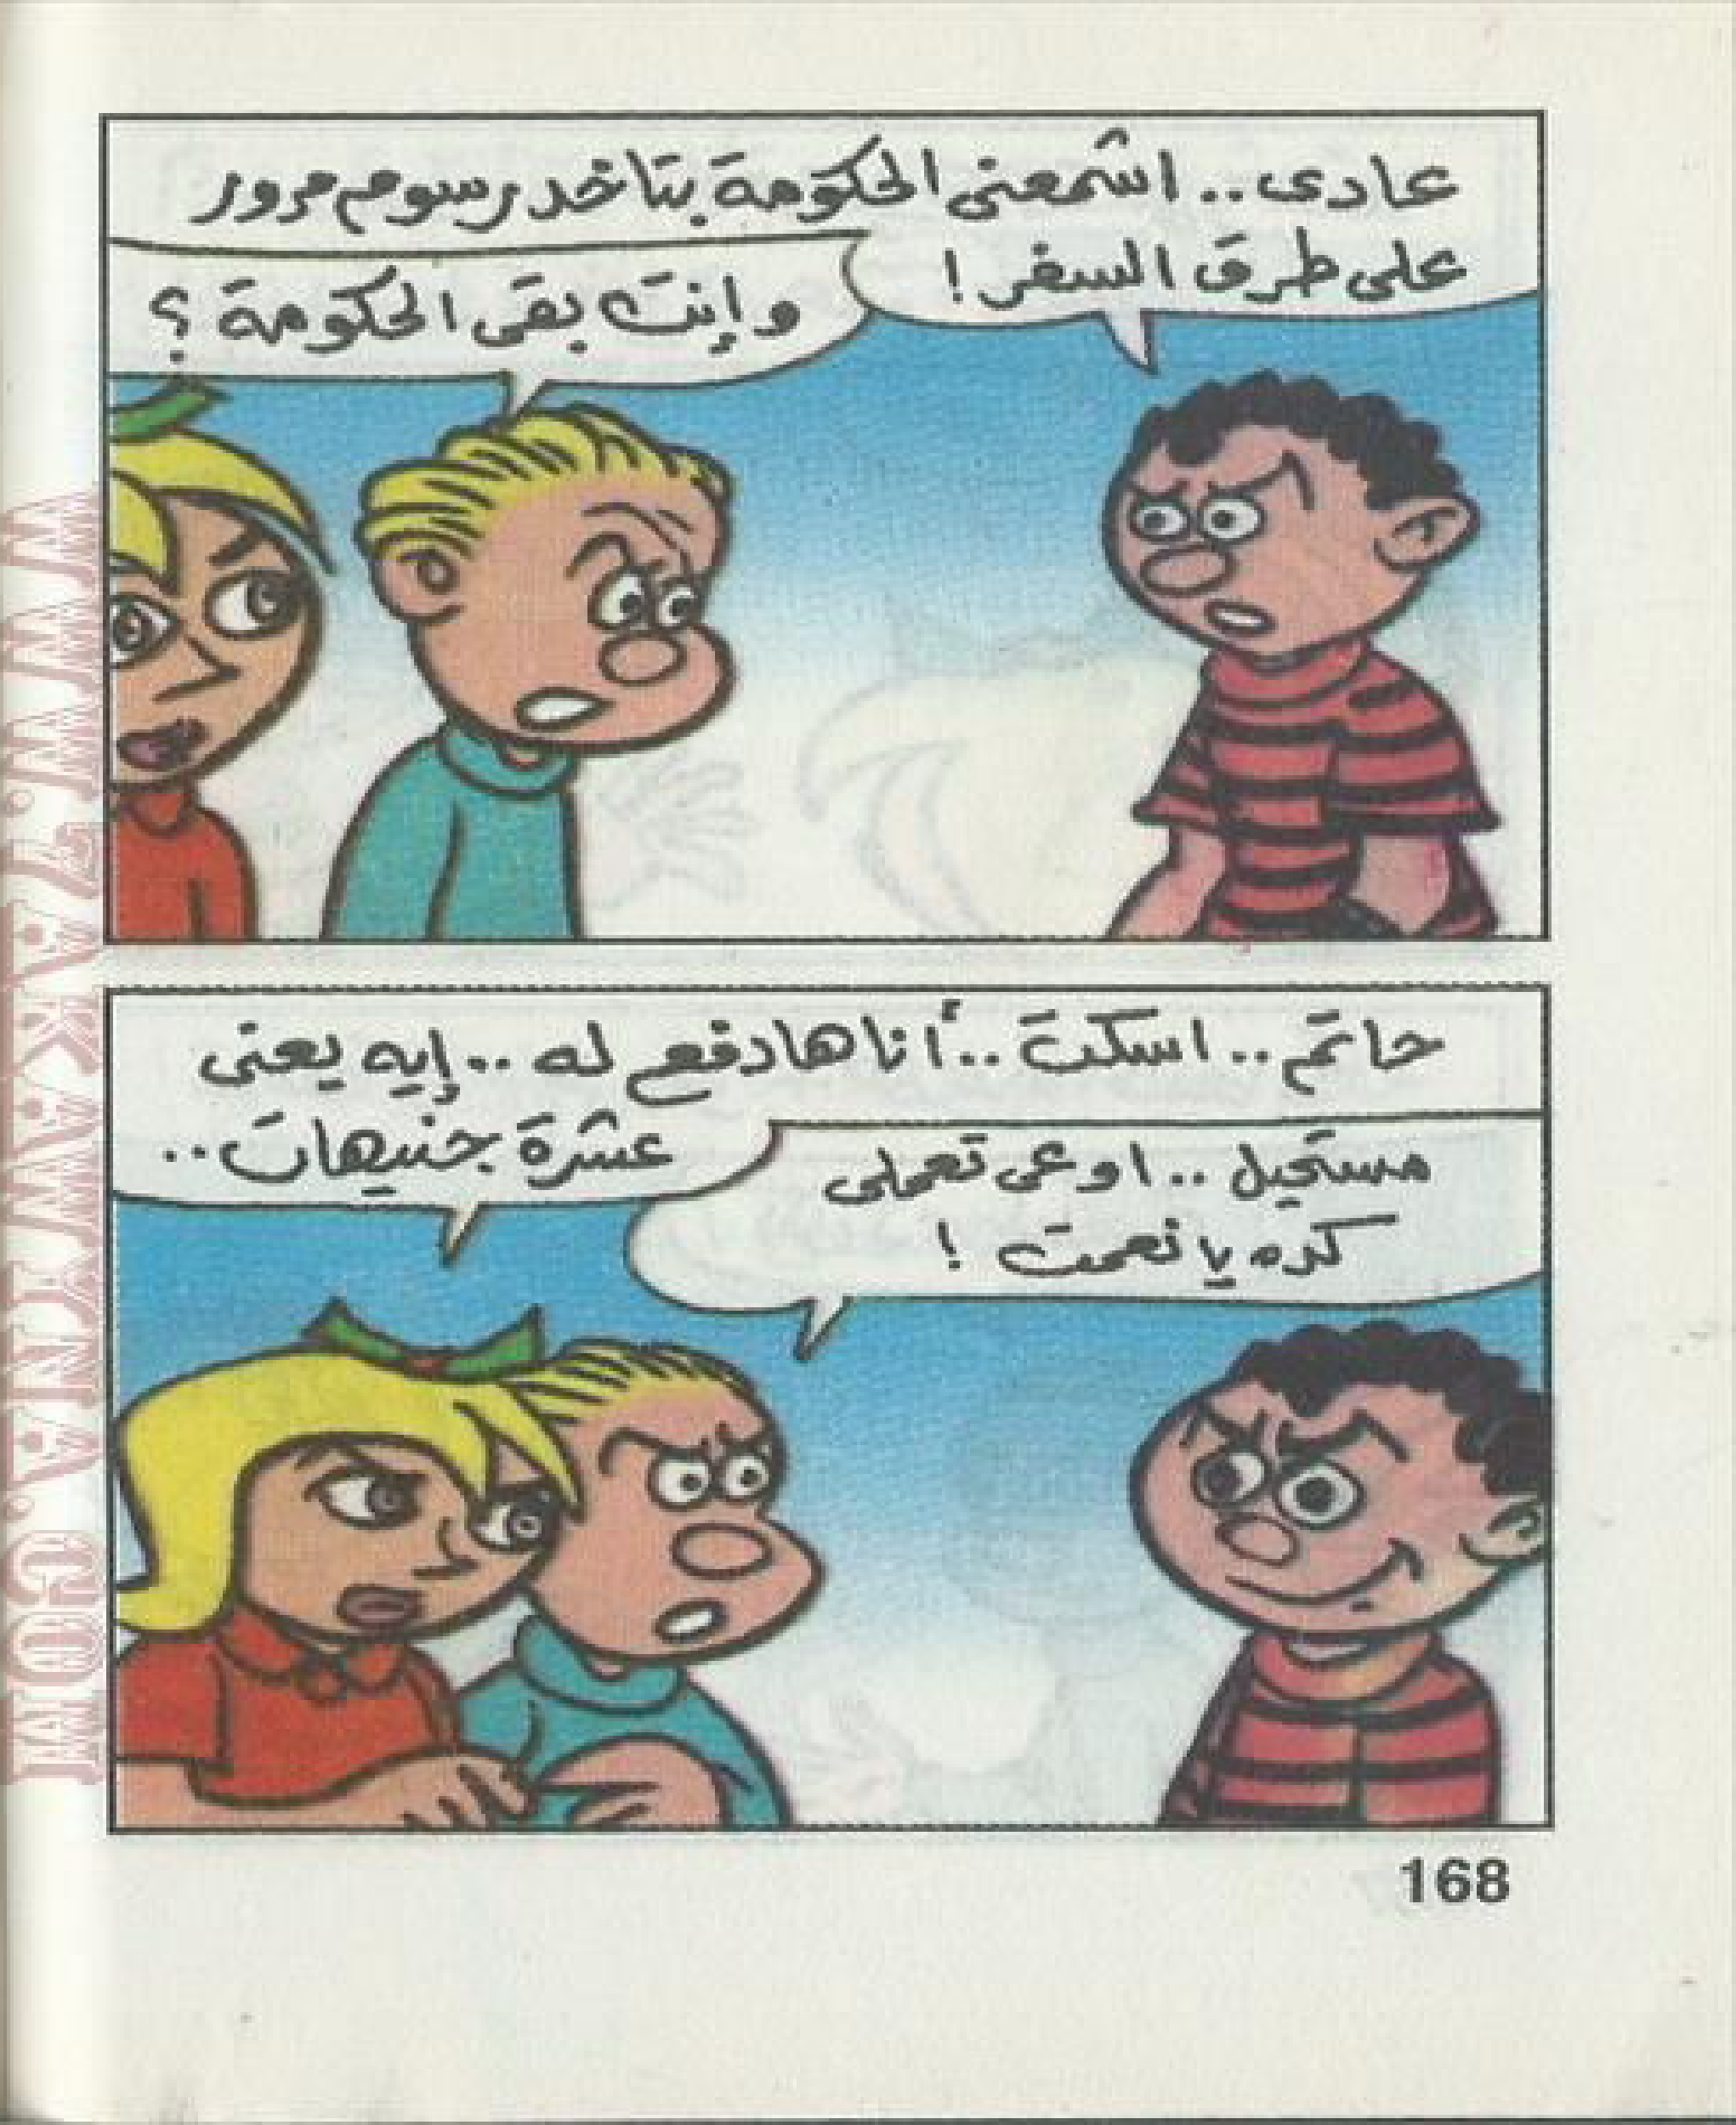 عادى.. اشمعنى الحكومة بتاخد رسوم مرور
على طرق السفر!
وإنت بقى الحكومة؟
حاتم.. اسكت.. أنا هادفع له.. إيه يعنى
عشرة جنيهات..
مستحيل.. اوعى تعملى
كده يا نعمت!
168
WWW.7AKAWYNA.COM